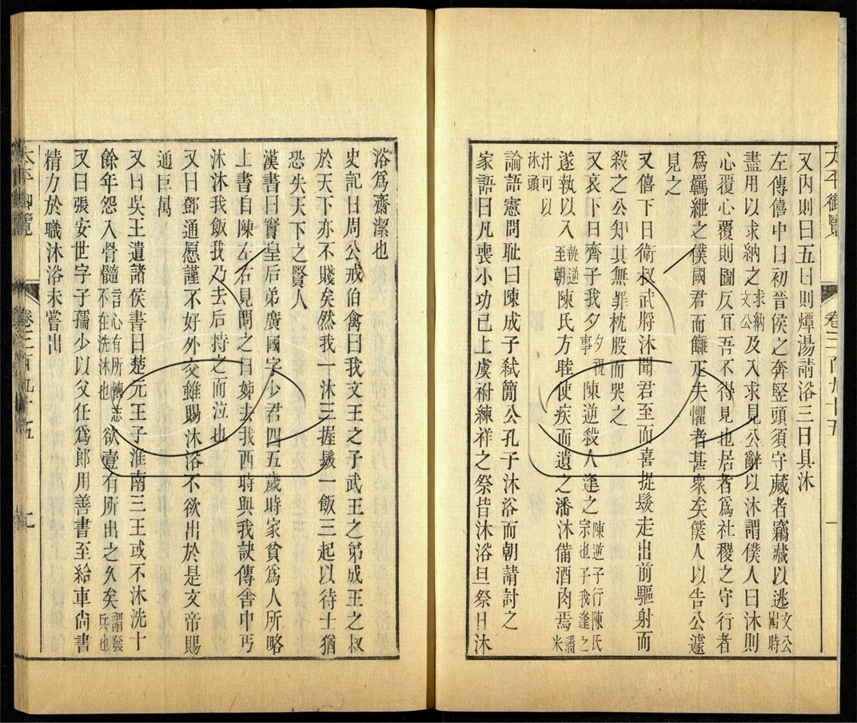 太平御覽 卷三百九十五 一
又內則曰五日則燂湯請浴三日具沐
左傳僖中曰初晉侯之奔豎頭須守藏者竊藏以逃文公出時
盡用以求納之求納文公及入求見公辭以沐謂僕人曰沐則
心覆心覆則圖反宜吾不得見也居者為社稷之守行者
為羈紲之僕國君而讎匹夫懼者甚衆矣僕人以告公遽
見之
又僖下曰衛叔武將沐聞君至而喜捉髮走出前驅射而
殺之公知其無罪枕股而哭之
又哀下曰齊子我夕夕視事陳逆殺人逢之陳逆子行陳氏宗也子我逢之
遂執以入執逆至朝陳氏方睦使疾而遺之潘沐備酒肉焉潘米
汁可以沐頭
論語憲問恥曰陳成子弒簡公孔子沐浴而朝請討之
家語曰凡喪小功已上虞祔練祥之祭皆沐浴旦祭日沐
浴為齋潔也
史記曰周公戒伯禽曰我文王之子武王之弟成王之叔
於天下亦不賤矣然我一沐三握髮一飯三起以待士猶
恐失天下之賢人
漢書曰竇皇后弟廣國字少君四五歲時家貧為人所略
上書自陳左右見問之曰姊去我西時與我訣傳舍中丐
沐沐我飯我乃去后持之而泣也
又曰鄧通愿謹不好外交雖賜沐浴不欲出於是文帝賜
通巨萬
又曰吳王遺諸侯書曰楚元王子淮南三王或不沐洗十
餘年怨入骨髓言心有所懷志不在洗沐也欲壹有所出之久矣謂發兵也
又曰張安世字子孺少以父任為郎用善書至給車尚書
精力於職沐浴未嘗出
太平御覽 卷三百九十五